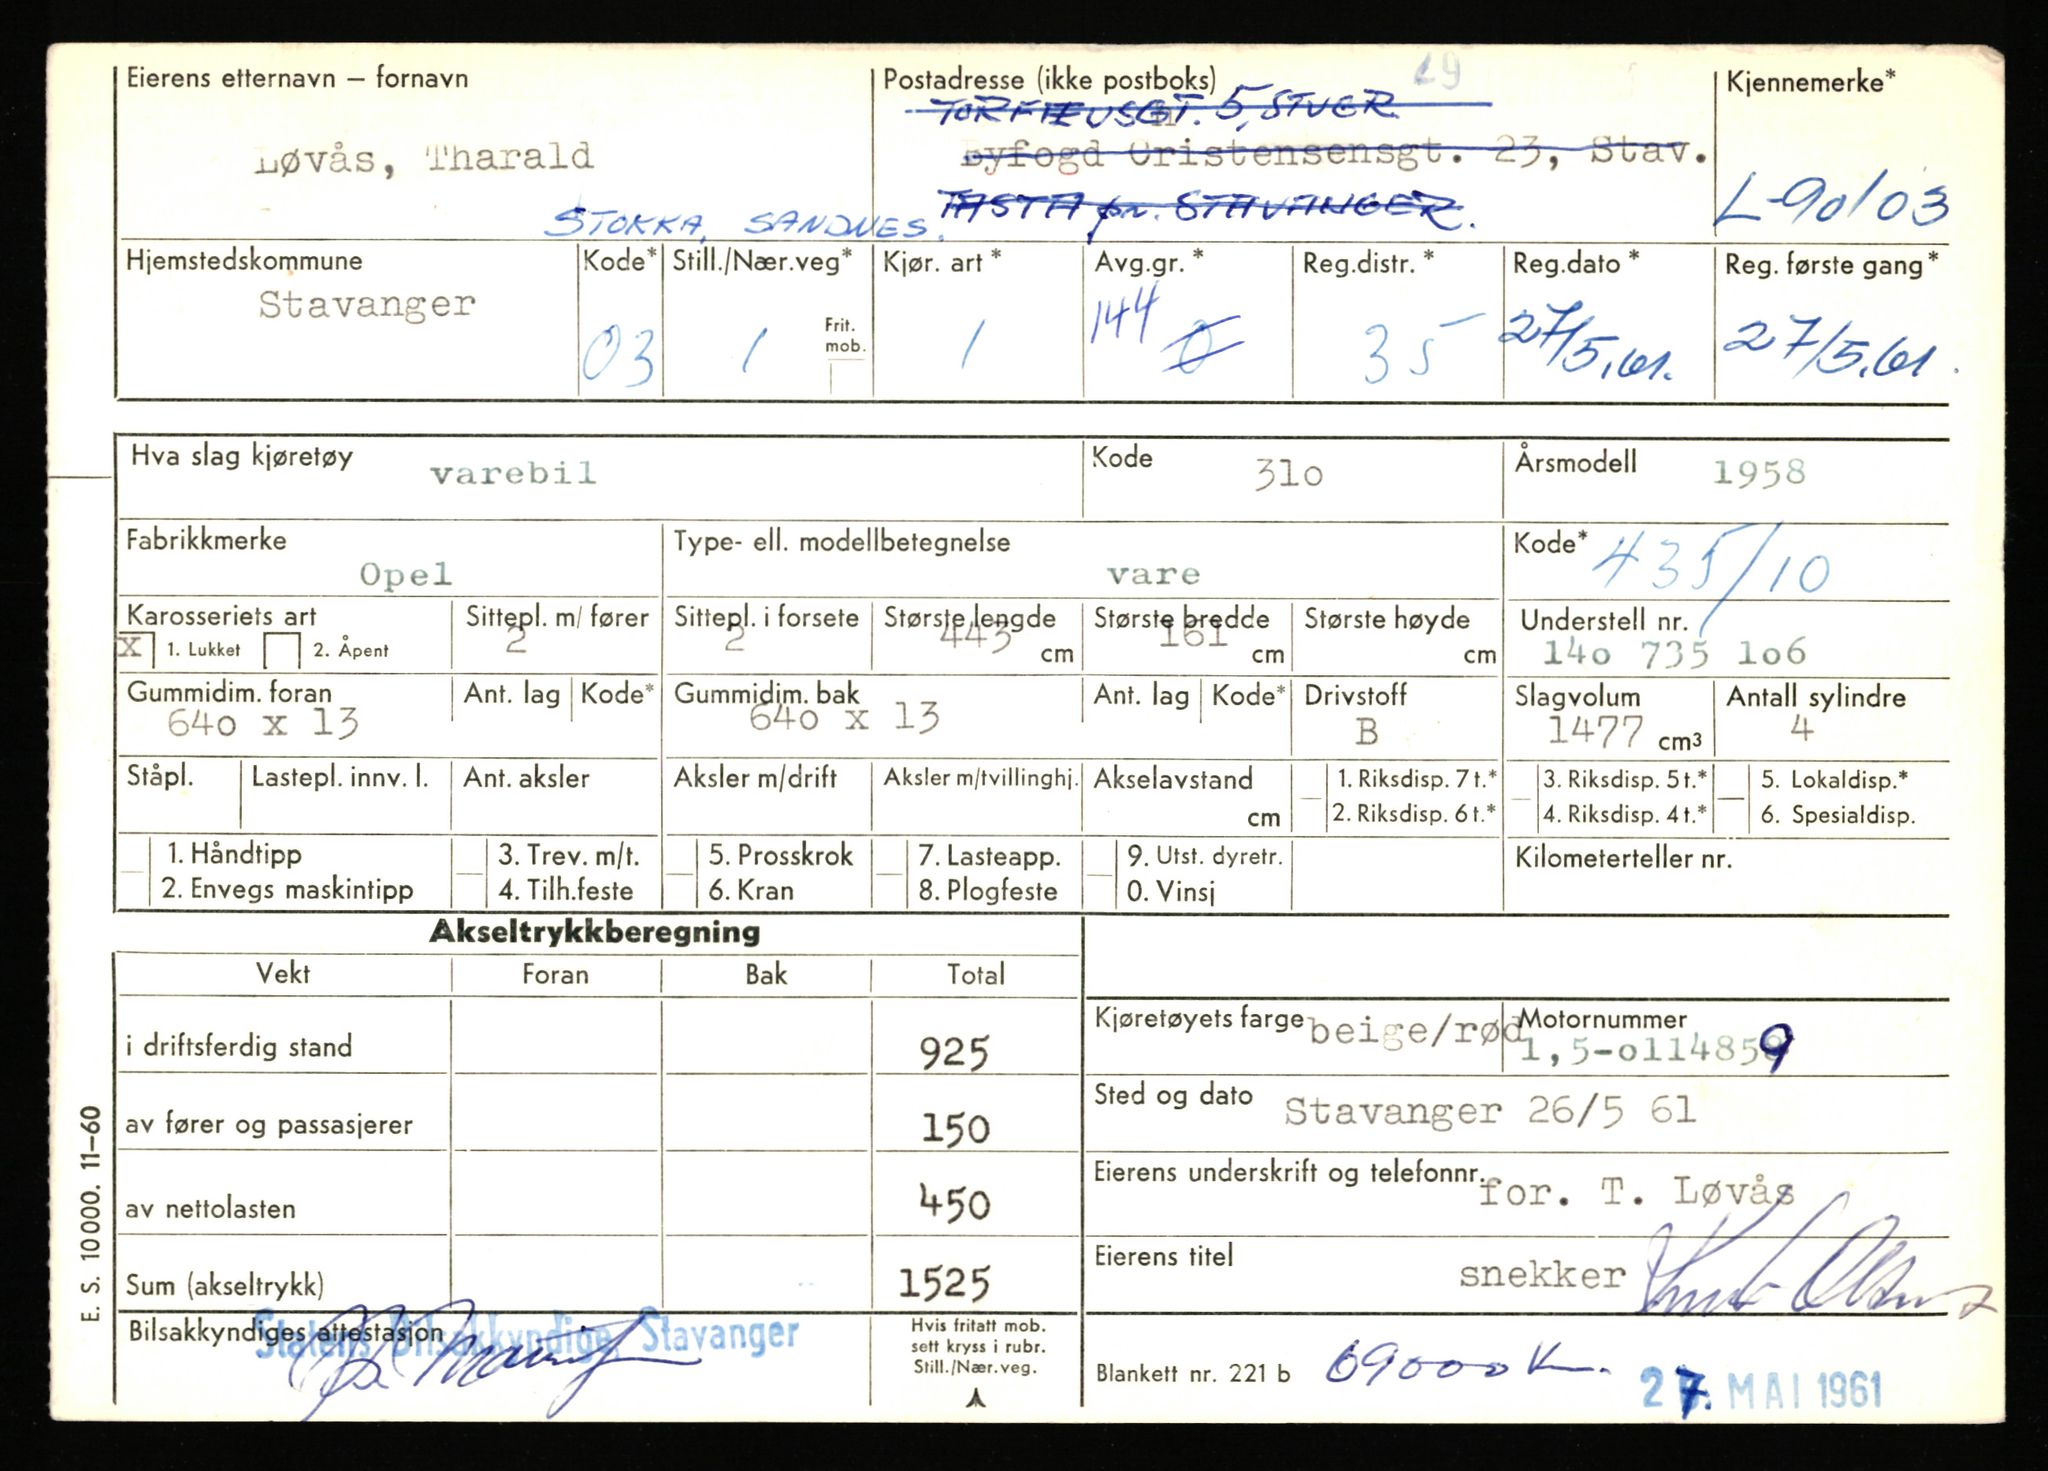 Eierens etternavn – fornavn
Løvås, Tharald
Postadresse (ikke postboks) 29
TORFÆUSGT. 5, STVGR.
Byfogd Christensensgt. 23, Stav.
TASTA pr. STAVANGER.
STOKKA, SANDNES.
Kjennemerke*
L-90103
Hjemstedskommune
Stavanger
Kode*
03
Still./Nær.veg*
1
Frit. mob.
Kjør. art*
1
Avg.gr.*
144 0
Reg.distr.*
35
Reg.dato*
27/5.61.
Reg. første gang*
27/5.61.
Hva slag kjøretøy
varebil
Kode
31o
Årsmodell
1958
Fabrikkmerke
Opel
Type- ell. modellbetegnelse
vare
Kode*
435/10
Karosseriets art
X 1. Lukket 2. Åpent
Sittepl. m/ fører
2
Sittepl. i forsete
2
Største lengde
443 cm
Største bredde
161 cm
Største høyde
cm
Understell nr.
14o 735 1o6
Gummidim. foran
64o x 13
Ant. lag Kode*
Gummidim. bak
64o x 13
Ant. lag Kode*
Drivstoff
B
Slagvolum
1477 cm³
Antall sylindre
4
Ståpl.
Lastepl. innv. l.
Ant. aksler
Aksler m/drift
Aksler m/tvillinghj.
Akselavstand
cm
1. Riksdisp. 7 t.*
2. Riksdisp. 6 t.*
3. Riksdisp. 5 t.*
4. Riksdisp. 4 t.*
5. Lokaldisp.*
6. Spesialdisp.
1. Håndtipp
2. Envegs maskintipp
3. Trev. m/t.
4. Tilh.feste
5. Prosskrok
6. Kran
7. Lasteapp.
8. Plogfeste
9. Utst. dyretr.
0. Vinsj
Kilometerteller nr.
Akseltrykkberegning
Vekt Foran Bak Total
i driftsferdig stand 925
av fører og passasjerer 150
av nettolasten 450
Sum (akseltrykk) 1525
Bilsakkyndiges attestasjon
Statens Bilsakkyndige, Stavanger
Hvis fritatt mob.
sett kryss i rubr.
Still./Nær.veg.
Kjøretøyets farge beige/rød
Motornummer
1,5-o114859
Sted og dato Stavanger 26/5 61
Eierens underskrift og telefonnr. for. T. Løvås
Eierens titel snekker
Knut Olsen
Blankett nr. 221 b 69000 Km.
27. MAI 1961
E. S. 10000. 11–60